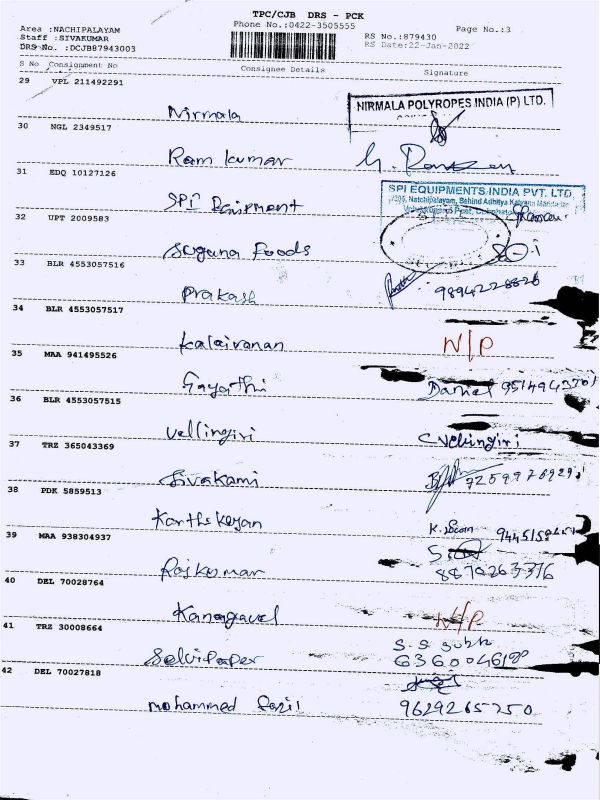 TPC/CJB DRS - PCK
Phone No.:0422-3505555
Page No.:3
Area :NACHIPALAYAM
Staff :SIVAKUMAR
DRS No. :DCJB87943003
RS No.:879430
RS Date:22-Jan-2022
S No Consignment No Consignee Details Signature
29 VPL 211492291
Nirmala
NIRMALA POLYROPES INDIA (P) LTD.
30 NGL 2349517
Ram kumar
31 EDQ 10127126
SPI Equipment
SPI EQUIPMENTS INDIA PVT. LTD.
Natchipalayam, Behind Adhitya Kalyana Mandapam
32 UPT 2009583
Suguna Foods
33 BLR 4553057516
Prakash
9894228826
34 BLR 4553057517
Kalaivanan N/P
35 MAA 941495526
Gayathri Daniel
36 BLR 4553057515
Vellingiri C. Vellingiri
37 TRZ 365043369
Sivakami
38 PDK 5859513
Karthikeyan
39 MAA 938304937
Rajkumar 8870263376
40 DEL 70028764
Kanagavel N/P
41 TRZ 30008664
Selvi Paper
42 DEL 70027818
mohammed fazil 9629265750